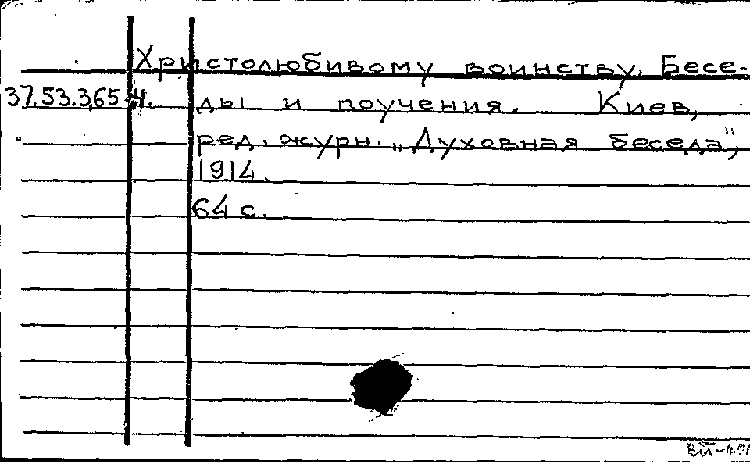 Христолюбивому воинству. Бесе-
37.53.365.4. ды и поучения. Киев,
ред. журн. „Духовная беседа",
1914.
64 с.